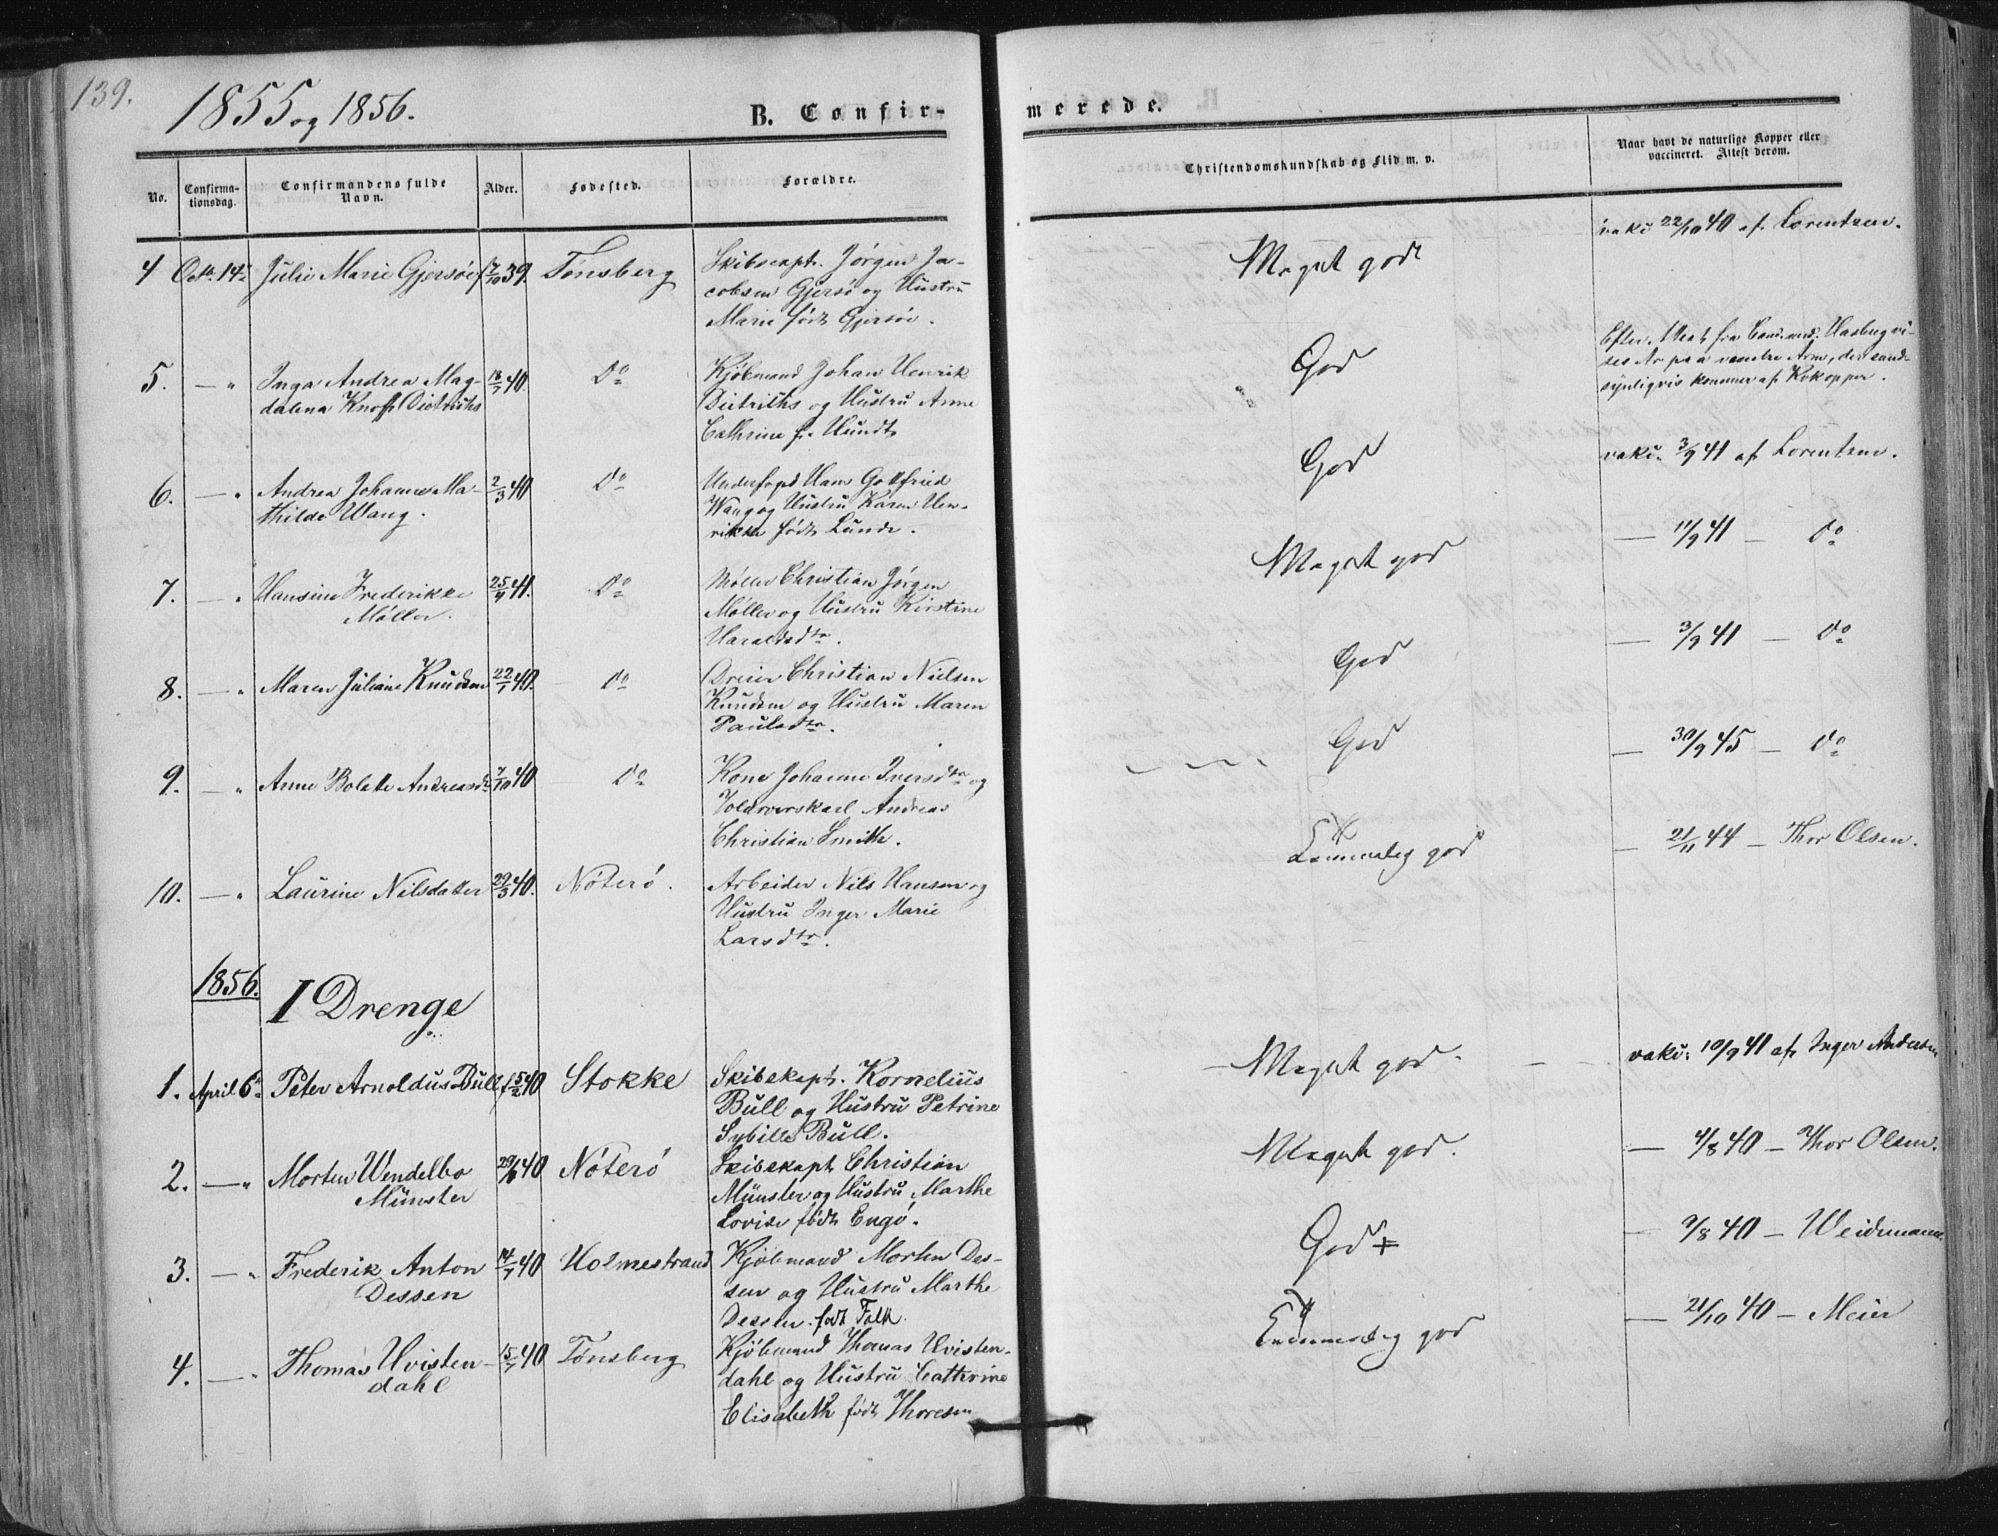 139.
1855 og 1856.
B. Confirmerede.
No.
Confirmationsdag.
Confirmandens fulde Navn.
Alder.
Fødested.
Forældre.
Christendomskundskab og Flid m. v.
Naar havt de naturlige Kopper eller vaccineret. Attest derom.
4 Octb. 14de Julie Marie Gjersøe 7/10 39. Tønsberg Skibscapt. Jørgen Ja-
cobsen Gjersø og Hustru
Marie født Gjersøe.
Meget god
vakc. 22/10 40 af Lorentzen.
5. — " Inga Andrea Mag-
dalena Knoff Dietrichs
40. Do
Kjøbmand Johan Henrik
Dietrichs og Hustru Anne
Cathrine f. Hundt
God
Efter Attest fra Cand. med. Hasberg vi-
ses Ar paa venstre Arm, der sand-
synligvis kommer af Kokopper.
6. — " Andrea Johanne Ma-
thilde Wang.
2/3 40 Do
Underfoged Hans Gottfried
Wang og Hustru Karen Hen-
rikke født Lunde.
God
vakc. 3/9 41 af Lorentzen.
7. — " Hansine Frederikke
Møller.
41. Do
Møller Christian Jørgen
Møller og Hustru Kirstine
Haraldsdtr.
Meget god
— 11/9 41 — Do
8. — " Maren Juliane Knudsen 22/1 40. Do
Dreier Christian Nielsen
Knudsen og Hustru Maren
Paulsdtr.
God
— 3/9 41 — Do
9. — " Anne Bolette Andreasdtr 7/10 40 Do
Kone Johanne Iversdtr og
Andreas
Christian Smith.
God
— 30/9 45 — Do
10. — " Laurine Nilsdatter 29/3 40. Nøterø.
Arbeider Nils Hansen og
Hustru Inger Marie
Larsdtr.
Temmelig god
— 21/11 44 — Thor Olsen.
1856. I Drenge
1. April 6te Peter Arnoldus Bull 5/2 40 Stokke
Skibskapt. Kornelius
Bull og Hustru Petrine
Sybille Bull.
Meget god.
vakc. 10/9 41 af Inger Andersen
2. — " Morten Wendelbo
Münster
40 Nøterø
Skibskapt Christian
Münster og Hustru Marthe
Lovise født Engø.
Meget god.
— 4/8 40 — Thor Olsen.
3. — " Frederik Anton
Dessen
14/7 40 Holmestrand
Kjøbmand Morten Des-
sen og Hustru Marthe
Dessen født Falk.
God +
— 9/8 40 — Weidemann.
4. — " Thomas Hvisten-
dahl
15/7 40 Tønsberg
Kjøbmand Thomas Hvisten-
dahl og Hustru Cathrine
Elisabeth født Thoresen
Temmelig god
— 21/10 40 — Meier